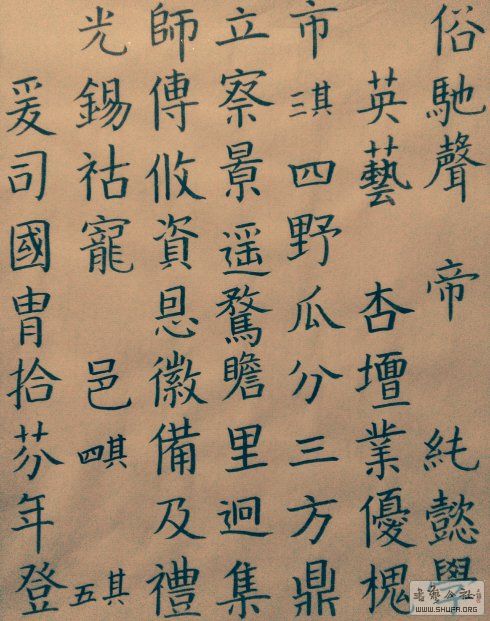 俗馳聲 帝 純懿學
英藝 杏壇業優槐
市 其三 四野瓜分三方鼎
立察景遥騖瞻里迥集
師傅攸資恩徽備及禮
光錫祜寵 邑 其四 其五
爰司國冑拾芬年登
書藝公社
WWW.SHUFA.ORG